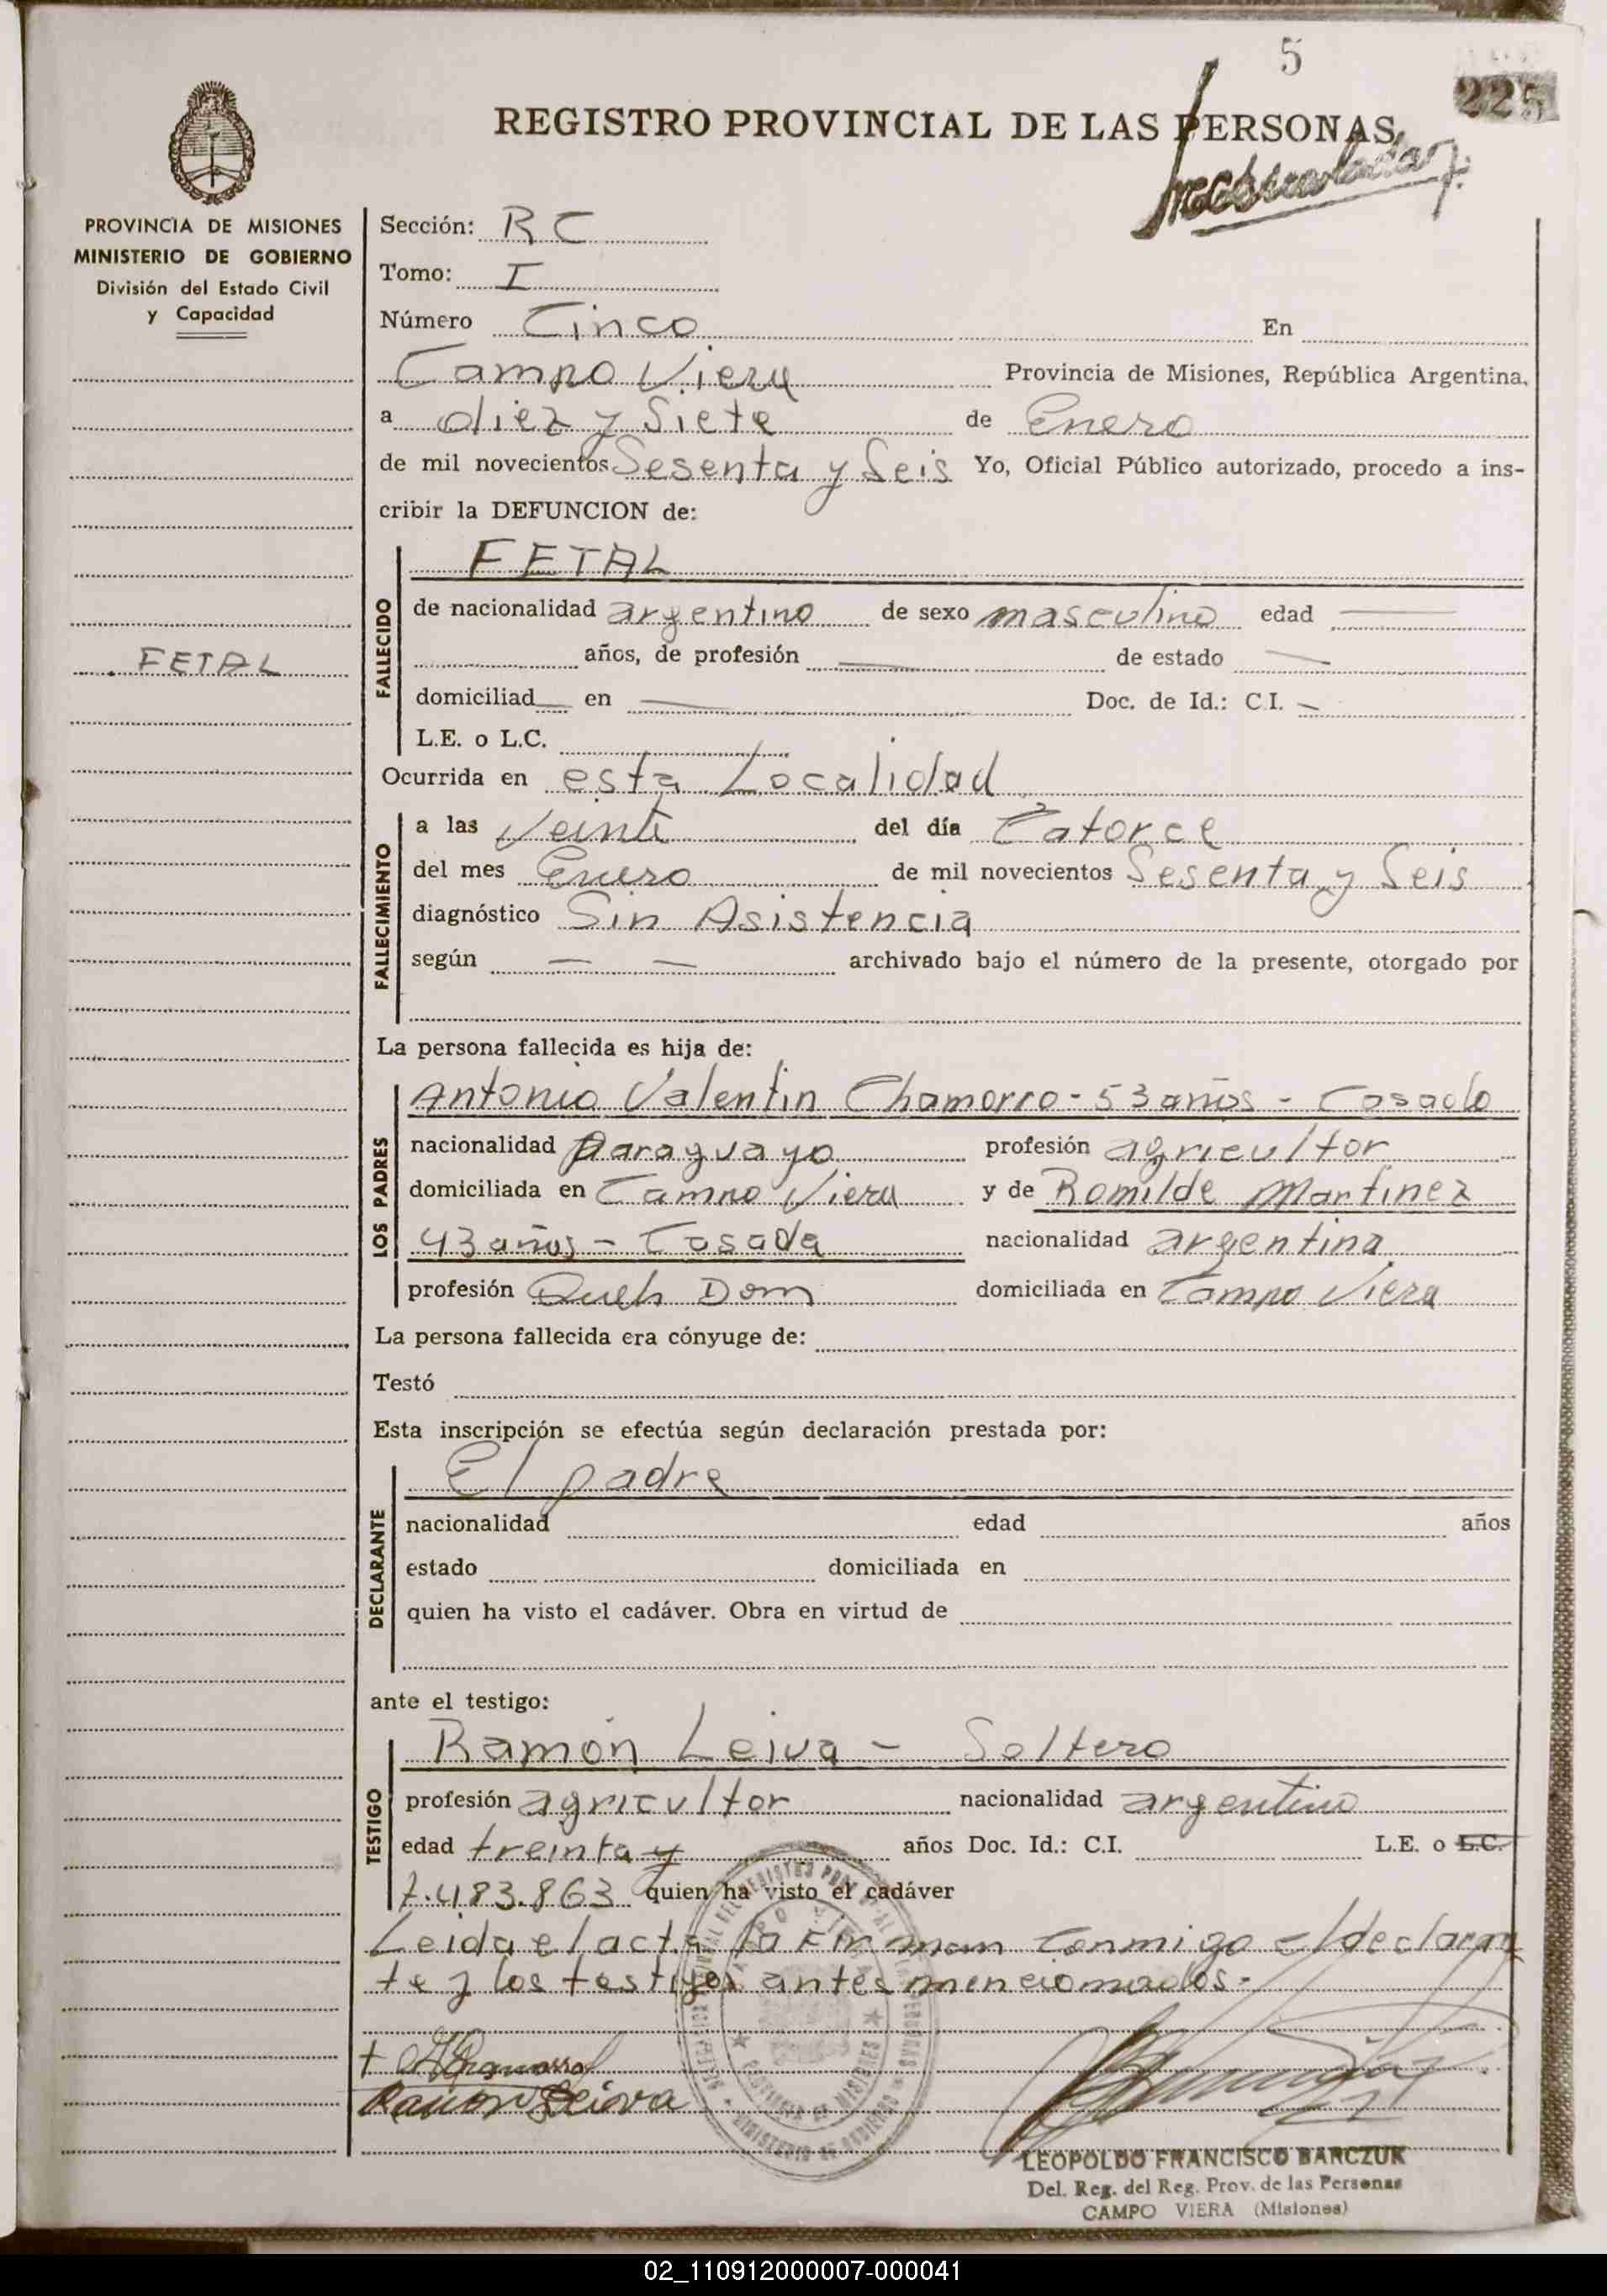 5
225
REGISTRO PROVINCIAL DE LAS PERSONAS
PROVINCIA DE MISIONES
MINISTERIO DE GOBIERNO
División del Estado Civil
y Capacidad
FETAL
Sección: R C
Tomo: I
Número Cinco En
Campo Viera Provincia de Misiones, República Argentina,
a diez y Siete de Enero
de mil novecientos Sesenta y Seis Yo, Oficial Público autorizado, procedo a ins-
cribir la DEFUNCION de:
FALLECIDO
FETAL
de nacionalidad argentino de sexo masculino edad —
años, de profesión — de estado —
domiciliad— en — Doc. de Id.: C.I. —
L.E. o L.C.
Ocurrida en esta Localidad
FALLECIMIENTO
a las Veinte del día Catorce
del mes Enero de mil novecientos Sesenta y Seis
diagnóstico Sin Asistencia
según — — archivado bajo el número de la presente, otorgado por
La persona fallecida es hija de:
LOS PADRES
Antonio Valentin Chamorro - 53 años - Casado
nacionalidad Paraguayo profesión agricultor
domiciliada en Campo Viera y de Romilde Martinez
43 años - Casada nacionalidad argentina
profesión Queh Dom domiciliada en Campo Viera
La persona fallecida era cónyuge de:
Testó
Esta inscripción se efectúa según declaración prestada por:
DECLARANTE
El padre
nacionalidad edad años
estado domiciliada en
quien ha visto el cadáver. Obra en virtud de
ante el testigo:
TESTIGO
Ramón Leiva - Soltero
profesión agricultor nacionalidad argentino
edad treinta y años Doc. Id.: C.I. L.E. o L.C.
7.483.863 quien ha visto el cadáver
Leida el acta la Firman conmigo el declaran
te y los testigos antes mencionados.-
Chamorro
Ramon Leiva
LEOPOLDO FRANCISCO BARCZUK
Del. Reg. del Reg. Prov. de las Personas
CAMPO VIERA (Misiones)
02_110912000007-000041